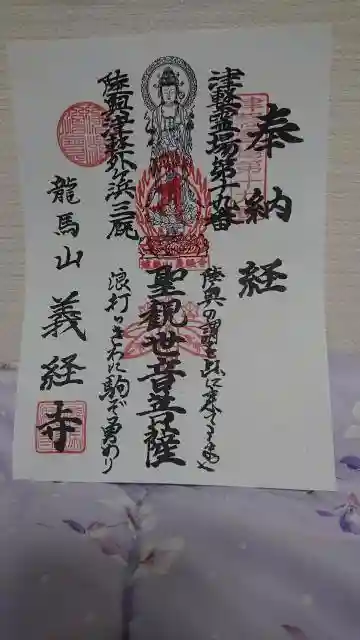 奉納経
津軽霊場第十九番
陸奥の
聖観世音菩薩
浪打つきわに駒ぞ勇めり
陸奥津軽外ヶ浜三厩
龍馬山
義経寺